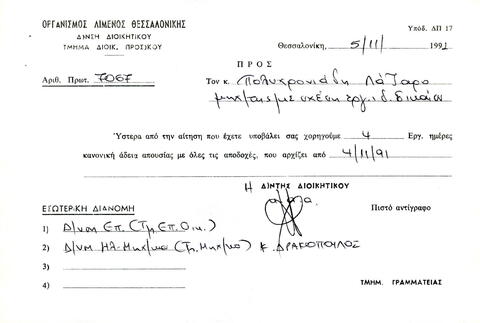 ΟΡΓΑΝΙΣΜΟΣ ΛΙΜΕΝΟΣ ΘΕΣΣΑΛΟΝΙΚΗΣ
Υπόδ. ΔΠ 17
Δ/ΝΣΗ ΔΙΟΙΚΗΤΙΚΟΥ
ΤΜΗΜΑ ΔΙΟΙΚ. ΠΡΟΣ/ΚΟΥ
Θεσσαλονίκη, 5/11/ 1991
ΠΡΟΣ
Αριθ. Πρωτ. 7067
Τον κ. Πολυχρονιάδη Λάζαρο
με σχέση εργ. ι.δ. δικαίου
Ύστερα από την αίτηση που έχετε υποβάλει σας χορηγούμε 4 Εργ. ημέρες
κανονική άδεια απουσίας με όλες τις αποδοχές, που αρχίζει από 4/11/91
Η Δ/ΝΤΗΣ ΔΙΟΙΚΗΤΙΚΟΥ
ΕΣΩΤΕΡΙΚΗ ΔΙΑΝΟΜΗ
Πιστό αντίγραφο
1) Δ/νση Επ. (Τμ. Επ. Οικ.)
2) Δ/νση Ηλ-Μηχ/κο (Τμ. Μηχ/κο) κ. ΔΡΑΚΟΠΟΥΛΟΣ
3)
4)
ΤΜΗΜ. ΓΡΑΜΜΑΤΕΙΑΣ